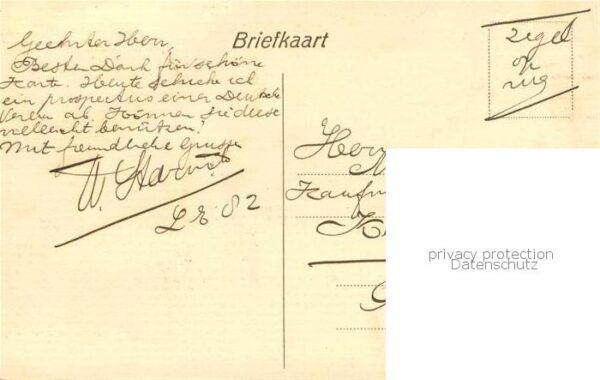 Briefkaart
Geehrter Herr,
Besten Dank für schöne
Karte. Heute schicke ich
ein prospectus einer Deutsche
Verein ab. Können Sie diese
vielleicht benützen?
Mit freundliche Grusse
L & 82
zegel
op
rug
Herrn
Kaufm
privacy protection
Datenschutz